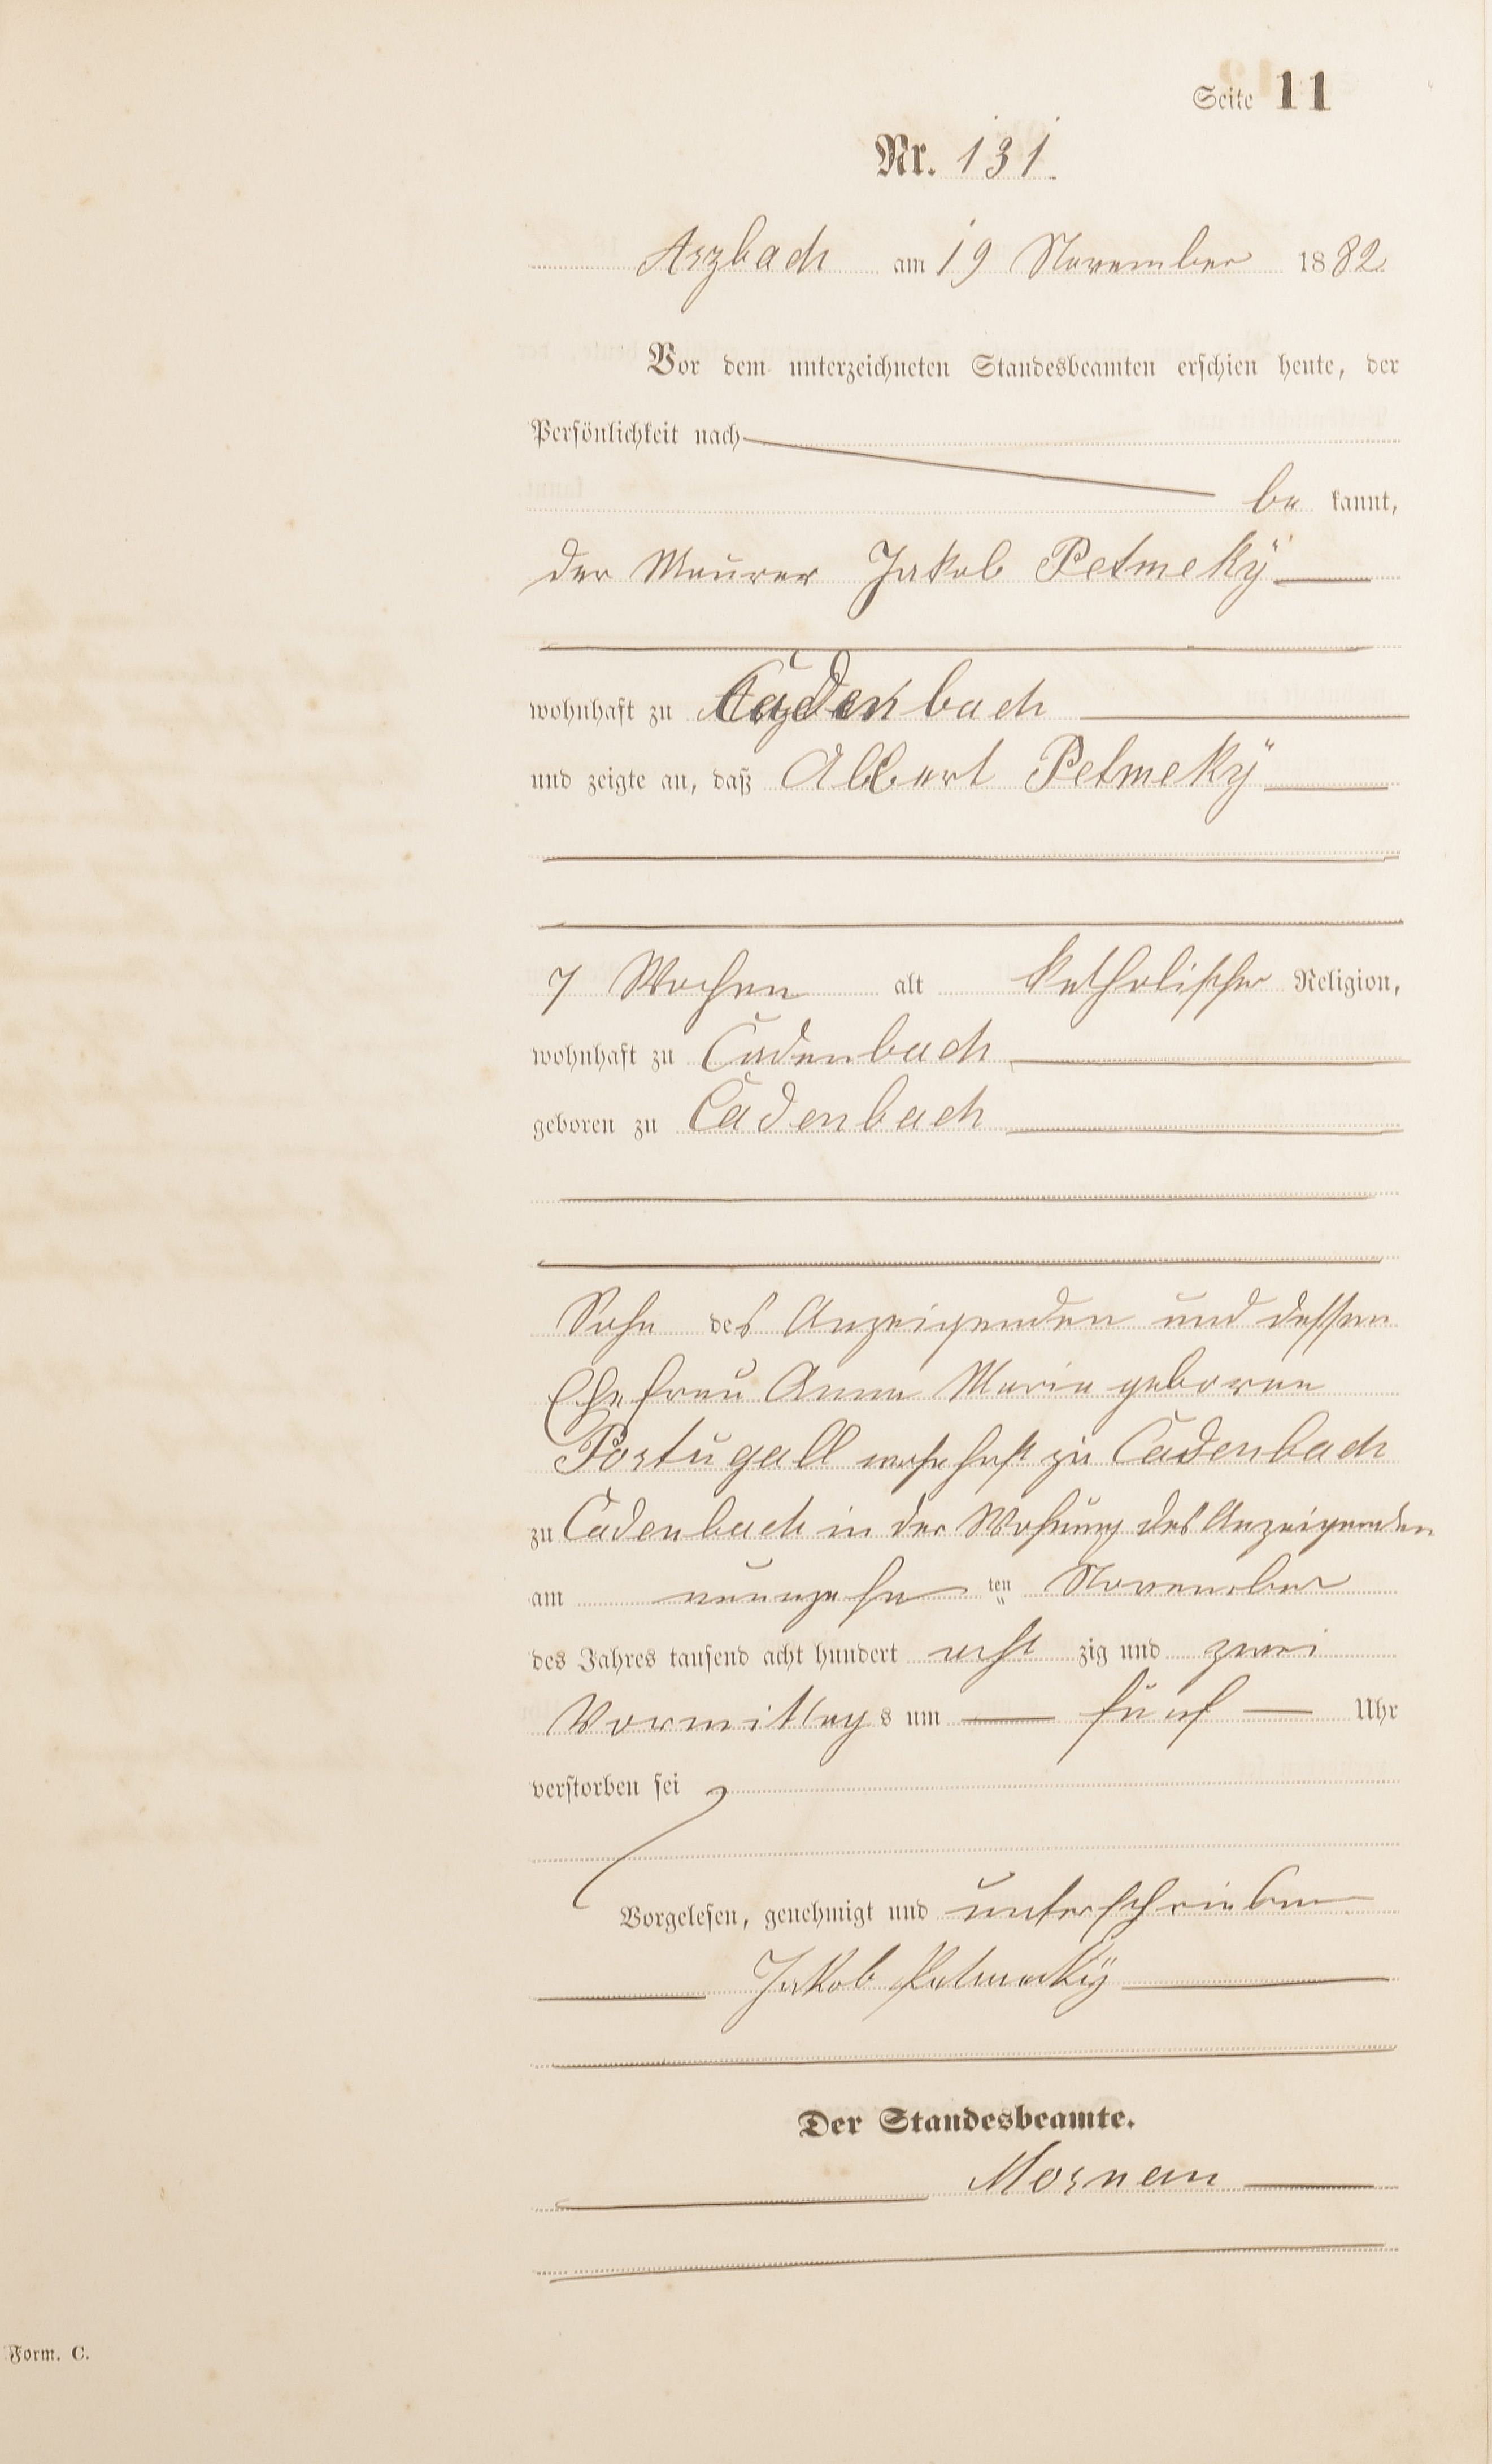 Seite 11
Nr. 131.
Arzbach am 19 November 1882.
Vor dem unterzeichneten Standesbeamten erschien heute, der
Persönlichkeit nach
be kannt,
der Maurer Jakob Petmekÿ
wohnhaft zu Cadenbach
und zeigte an, daß Albert Petmekÿ
7 Wochen alt katholischer Religion,
wohnhaft zu Cadenbach
geboren zu Cadenbach
Sohn des Anzeigenden und dessen
Ehefrau Anna Maria geborene
Portugall wohnhaft zu Cadenbach
zu Cadenbach in der Wohnung des Anzeigenden
am neunzehn ten November
des Jahres tausend acht hundert acht zig und zwei
Vormittags um fünf Uhr
verstorben sei
Vorgelesen, genehmigt und unterschrieben
Jakob Petmekÿ
Der Standesbeamte.
Form. C.